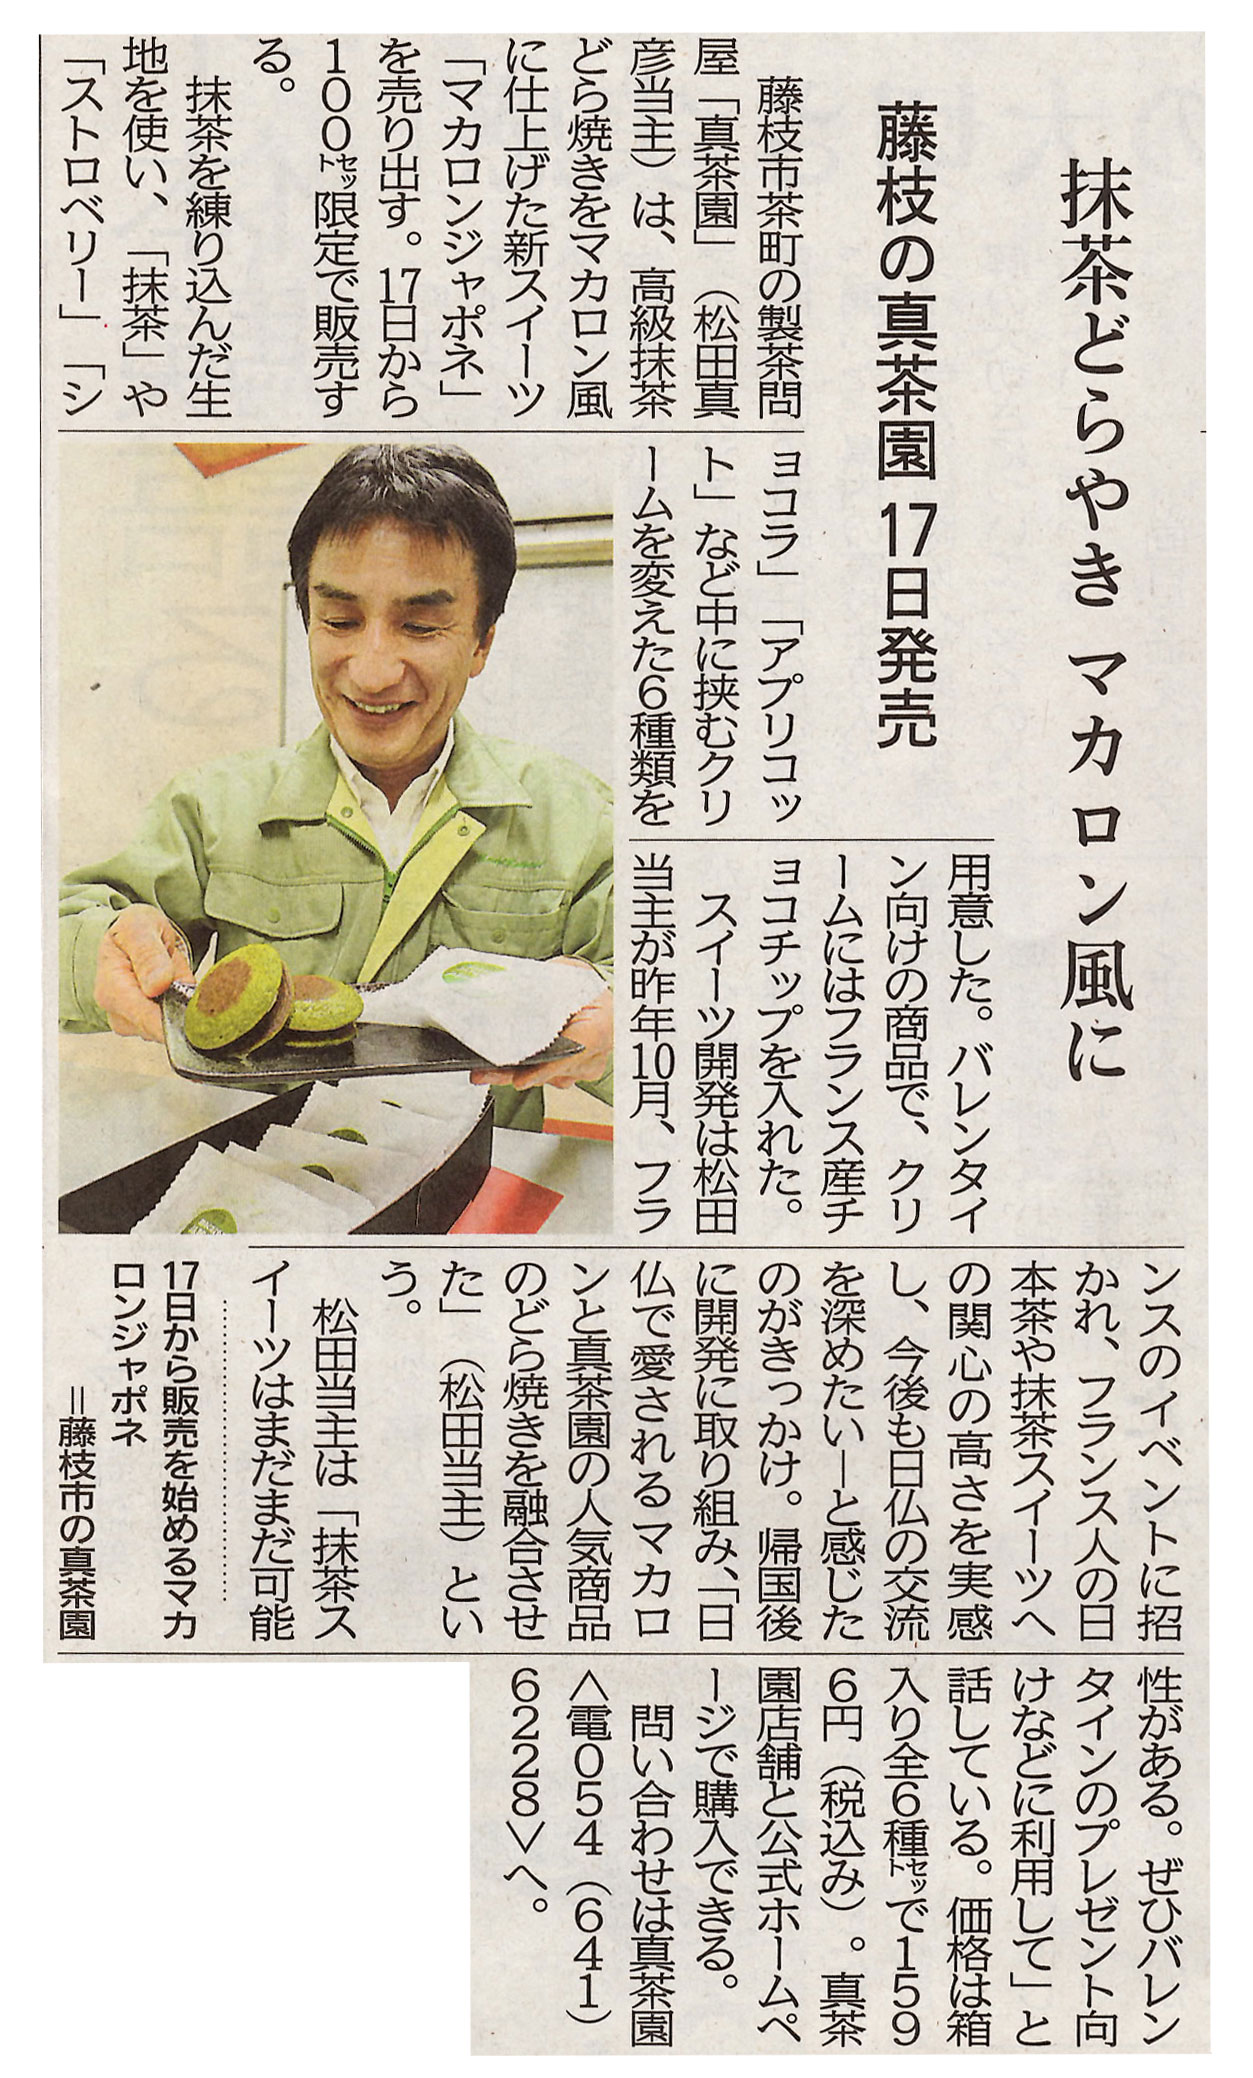 抹茶どらやき マカロン風に
藤枝の真茶園 17日発売
藤枝市茶町の製茶問
屋「真茶園」（松田真
彦当主）は、高級抹茶
どら焼きをマカロン風
に仕上げた新スイーツ
「マカロンジャポネ」
を売り出す。17日から
100セット限定で販売す
る。
抹茶を練り込んだ生
地を使い、「抹茶」や
「ストロベリー」「シ
ョコラ」「アプリコッ
ト」など中に挟むクリ
ームを変えた6種類を
用意した。バレンタイ
ン向けの商品で、クリ
ームにはフランス産チ
ョコチップを入れた。
スイーツ開発は松田
当主が昨年10月、フラ
ンスのイベントに招
かれ、フランス人の日
本茶や抹茶スイーツへ
の関心の高さを実感
し、今後も日仏の交流
を深めたい―と感じた
のがきっかけ。帰国後
に開発に取り組み、「日
仏で愛されるマカロ
ンと真茶園の人気商品
のどら焼きを融合させ
た」（松田当主）とい
う。
松田当主は「抹茶ス
イーツはまだまだ可能
性がある。ぜひバレン
タインのプレゼント向
けなどに利用して」と
話している。価格は箱
入り全6種セットで159
6円（税込み）。真茶
園店舗と公式ホームペ
ージで購入できる。
問い合わせは真茶園
＜電054（641）
6228＞へ。
17日から販売を始めるマカ
ロンジャポネ
＝藤枝市の真茶園